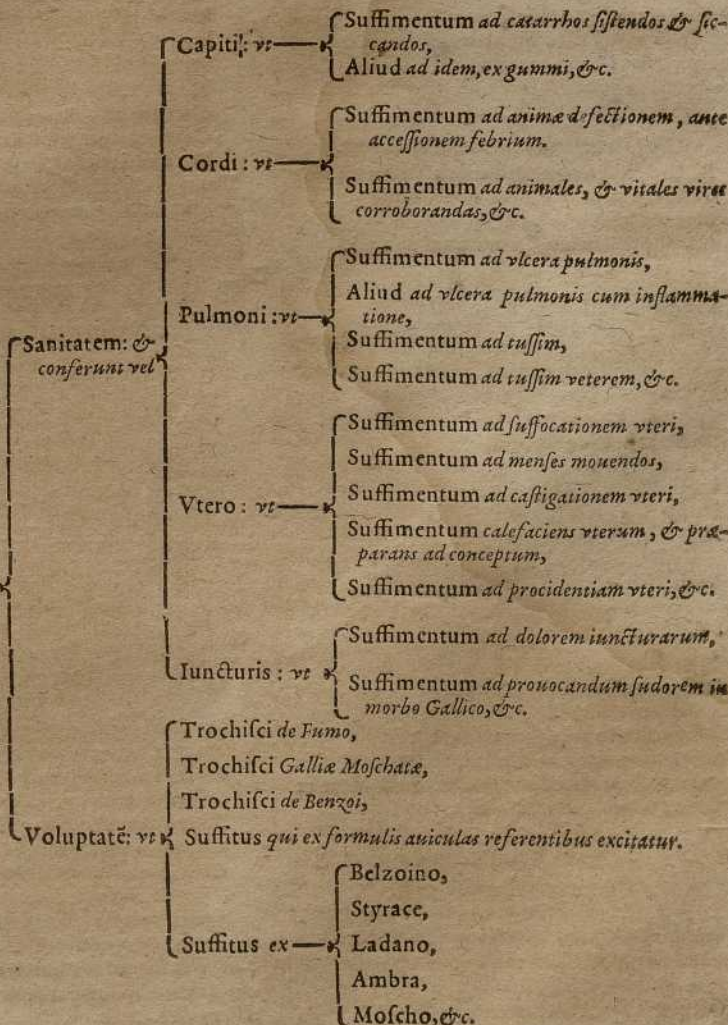 Capiti: vt
Suffimentum ad catarrhos ſiſtendos & ſic-
candos,
Aliud ad idem, ex gummi, &c.
Cordi: vt
Suffimentum ad animæ defectionem, ante
acceſſionem febrium.
Suffimentum ad animales, & vitales vires
corroborandas, &c.
Pulmoni: vt
Suffimentum ad vlcera pulmonis,
Aliud ad vlcera pulmonis cum inflamma-
tione,
Suffimentum ad tuſſim,
Suffimentum ad tuſſim veterem, &c.
Sanitatem: &
conferunt vel
Vtero: vt
Suffimentum ad ſuffocationem vteri,
Suffimentum ad menſes mouendos,
Suffimentum ad caſtigationem vteri,
Suffimentum calefaciens vterum, & præ-
parans ad conceptum,
Suffimentum ad procidentiam vteri, &c.
Iuncturis: vt
Suffimentum ad dolorem iuncturarum,
Suffimentum ad prouocandum ſudorem in
morbo Gallico, &c.
Voluptatē: vt
Trochiſci de Fumo,
Trochiſci Galliæ Moſchatæ,
Trochiſci de Benzoi,
Suffitus qui ex formulis auiculas referentibus excitatur.
Suffitus ex
Belzoino,
Styrace,
Ladano,
Ambra,
Moſcho, &c.